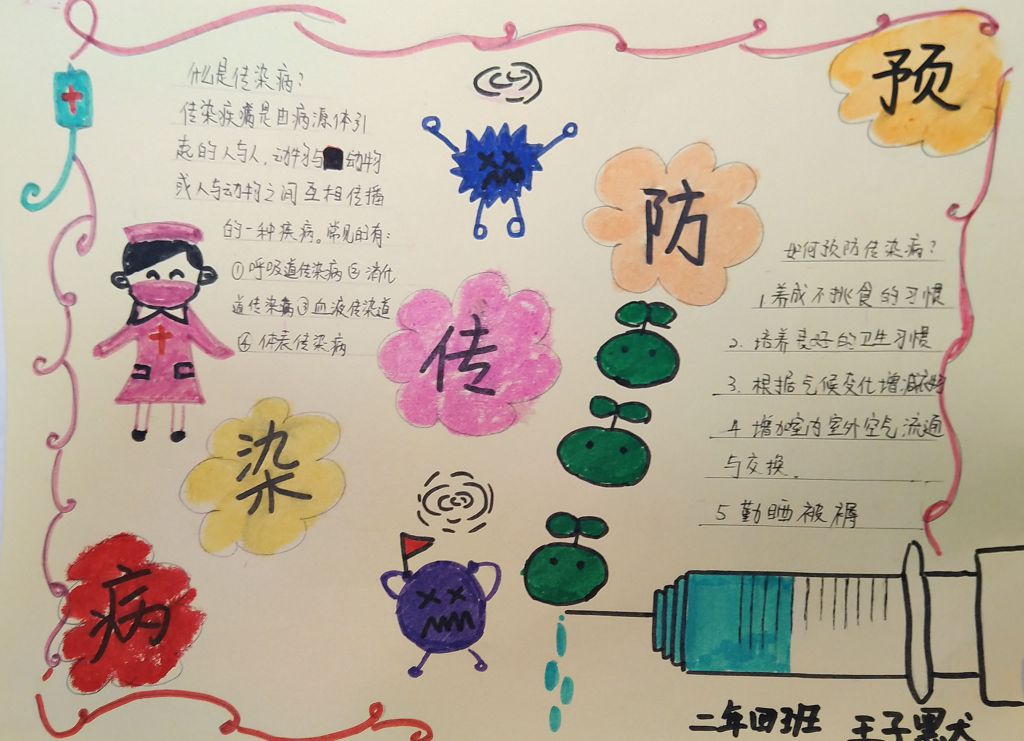 预
防
传
染
病
什么是传染病?
传染疾病是由病源体引
起的人与人,动物与动物
或人与动物之间互相传播
的一种疾病。常见的有:
①呼吸道传染病②消化
道传染病③血液传染道
④体表传染病
如何预防传染病?
1.养成不挑食的习惯
2.培养良好的卫生习惯
3.根据气候变化增减衣物
4增加室内室外空气流通
与交换.
5勤晒被褥
二年四班 王子